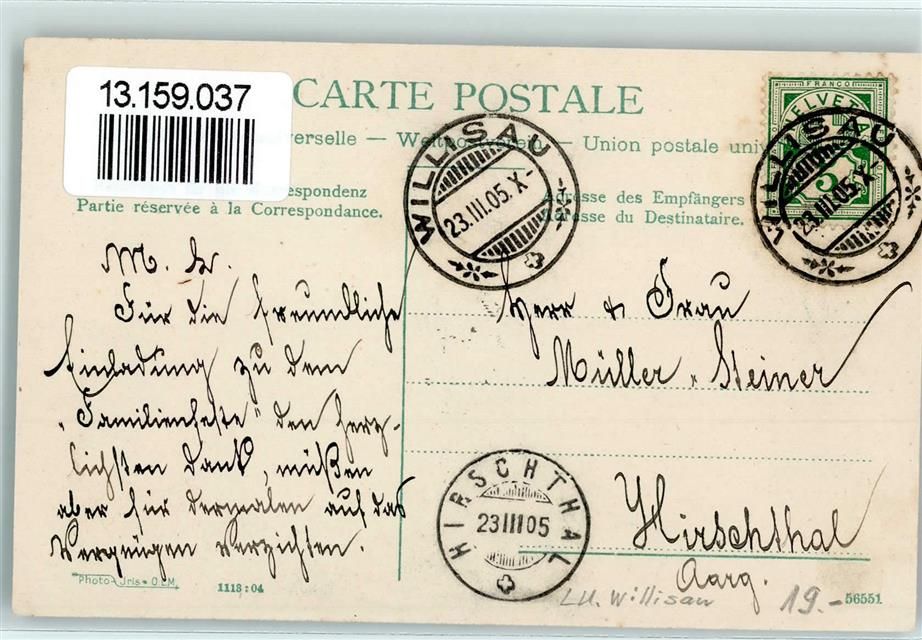 13.159.037
CARTE POSTALE
verselle — Weltpostverein — Union postale univ
respondenz
Partie réservée à la Correspondance.
Adresse des Empfängers
Adresse du Destinataire.
FRANCO
HELVETIA
5
WILLISAU
23.III.05.X-
WILLISAU
23.III.05.X-
M. L.
Für die freundliche
Einladung zu dem
"Familienfeste" den herz-
lichsten Dank, müßen
aber für dermalen auf das
Vergnügen verzichten.
Herr & Frau
Müller-Steiner
Hirschthal
Aarg.
HIRSCHTHAL
23 III 05
Photo-Iris • O.L.M.
1118:04
LU. Willisau
19.-
56551